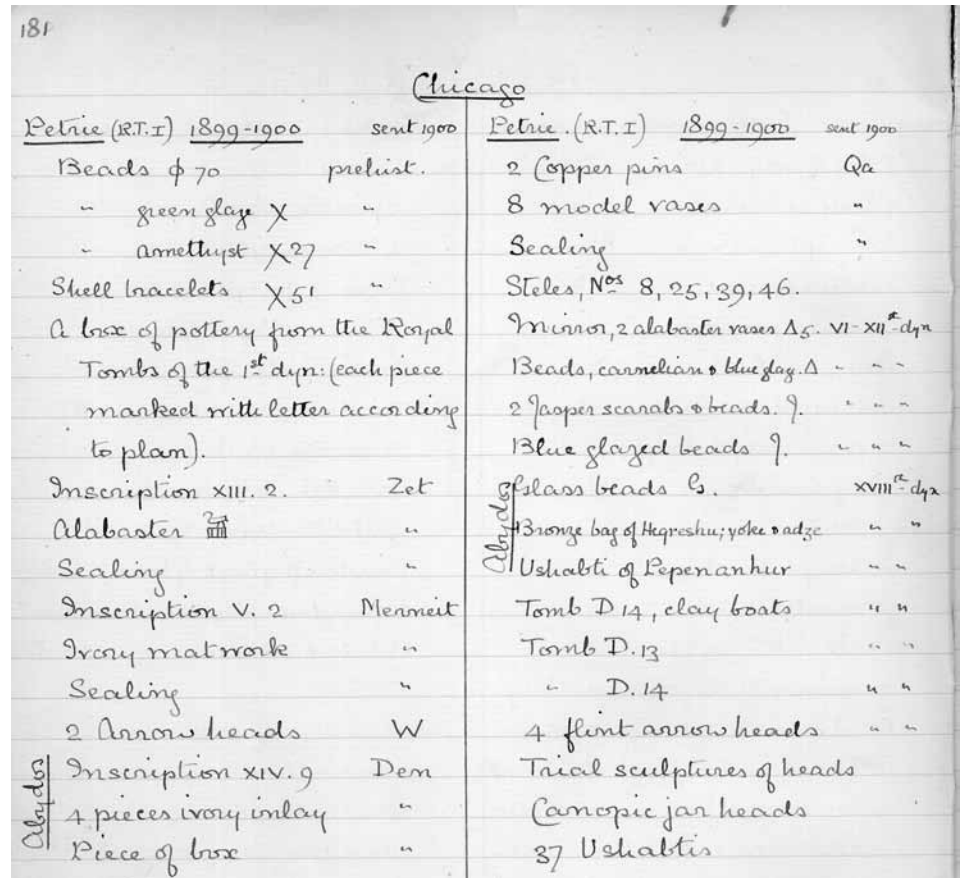 181
Chicago
Petrie (R.T. I) 1899-1900 sent 1900
Beads φ 70 prehist.
" green glaze X "
" amethyst X 27 "
Shell bracelets X 51 "
A box of pottery from the Royal
Tombs of the 1st dyn: (each piece
marked with letter according
to plan).
Inscription XIII. 2. Zet
Alabaster "
Sealing "
Inscription V. 2 Merneit
Ivory mat work "
Sealing "
2 Arrow heads W
Abydos
Inscription XIV. 9 Den
4 pieces ivory inlay "
Piece of box "
Petrie. (R.T. I) 1899-1900 sent 1900
2 Copper pins Qa
8 model vases "
Sealing "
Steles, Nos 8, 25, 39, 46.
Mirror, 2 alabaster vases Δ5. VI-XIIst dyn
Beads, carnelian & blue glaz. Δ " " "
2 Jasper scarabs & beads. " " "
Blue glazed beads " " "
Abydos
Glass beads G. XVIIIst dyn
Bronze bag of Heqreshu; yoke & adze " "
Ushabti of Pepenanhur " "
Tomb D 14, clay boats " "
Tomb D. 13 " "
" D. 14 " "
4 flint arrow heads " "
Trial sculptures of heads
Canopic jar heads
37 Ushabtis